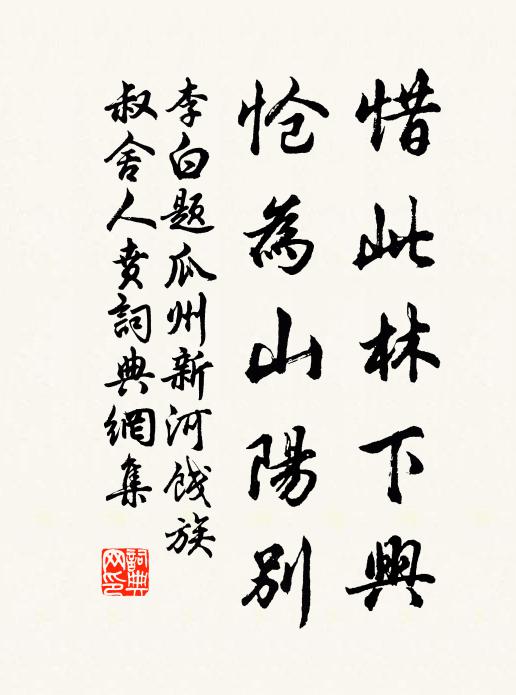 惜此林下興
怆為山陽別
李白题瓜州新河餞族
叔舍人賁詞典網集
詞典
网印